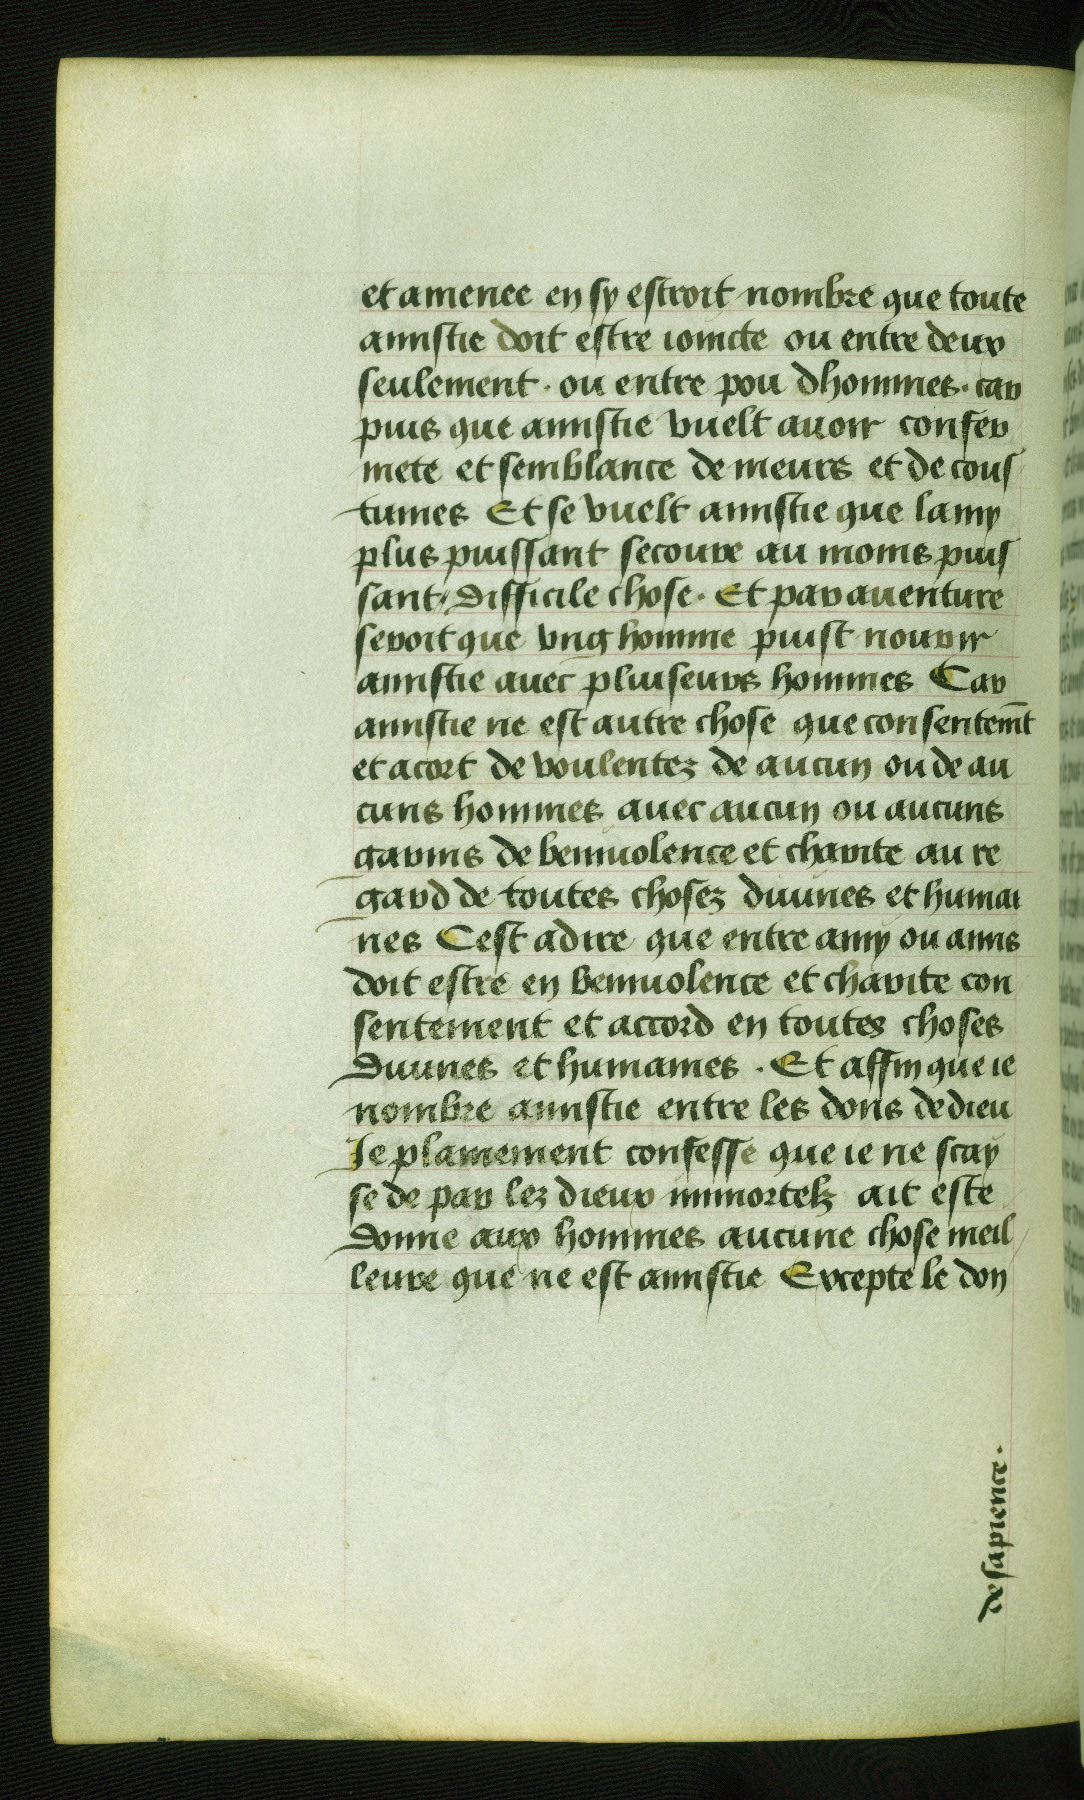 et amenee en sy estroit nombre que toute
amistie doit estre ioincte ou entre deux
seulement · ou entre pou dhommes · car
puis que amistie vuelt auoir confer
mete et semblance de meurs et de cous
tumes Et se vuelt amistie que lamy
plus puissant secoure au moins puis
sant / difficile chose · Et par auenture
seroit que vng homme puist nourir
amistie auec pluiseurs hommes Car
amistie ne est autre chose que consentemt
et acort de voulentez de aucun ou de au
cuns hommes auec aucun ou aucuns
garnis de beniuolence et charite au re
gard de toutes chosez diuines et humai
nes Cest adire que entre amy ou amis
doit estre en beniuolence et charite con
sentement et accord en toutes choses
diuines et humaines · Et affin que ie
nombre amistie entre les dons de dieu
Je plainement confesse que ie ne scay
se de par lez dieux immortelz ait este
donne aux hommes aucune chose meil
leure que ne est amistie Excepte le don
de sapience ·